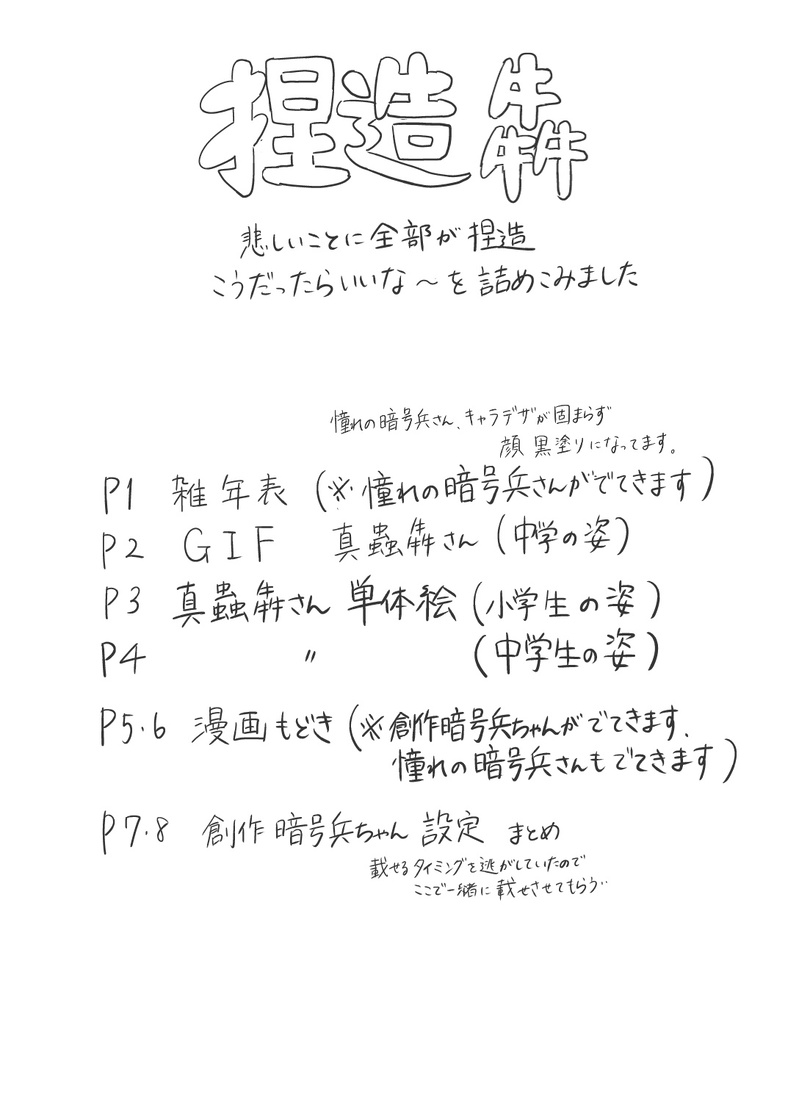 捏造犇
悲しいことに全部が捏造
こうだったらいいな〜を詰めこみました
憧れの暗号兵さん、キャラデザが固まらず
顔 黒塗りになってます。
P1 雑年表 (※憧れの暗号兵さんがでてきます)
P2 GIF 真蟲犇さん (中学の姿)
P3 真蟲犇さん 単体絵 (小学生の姿)
P4 〃 (中学生の姿)
P5.6 漫画もどき (※創作暗号兵ちゃんがでてきます、
憧れの暗号兵さんもでてきます)
P7.8 創作暗号兵ちゃん 設定 まとめ
載せるタイミングを逃がしていたので
ここで一緒に載せさせてもらう‥